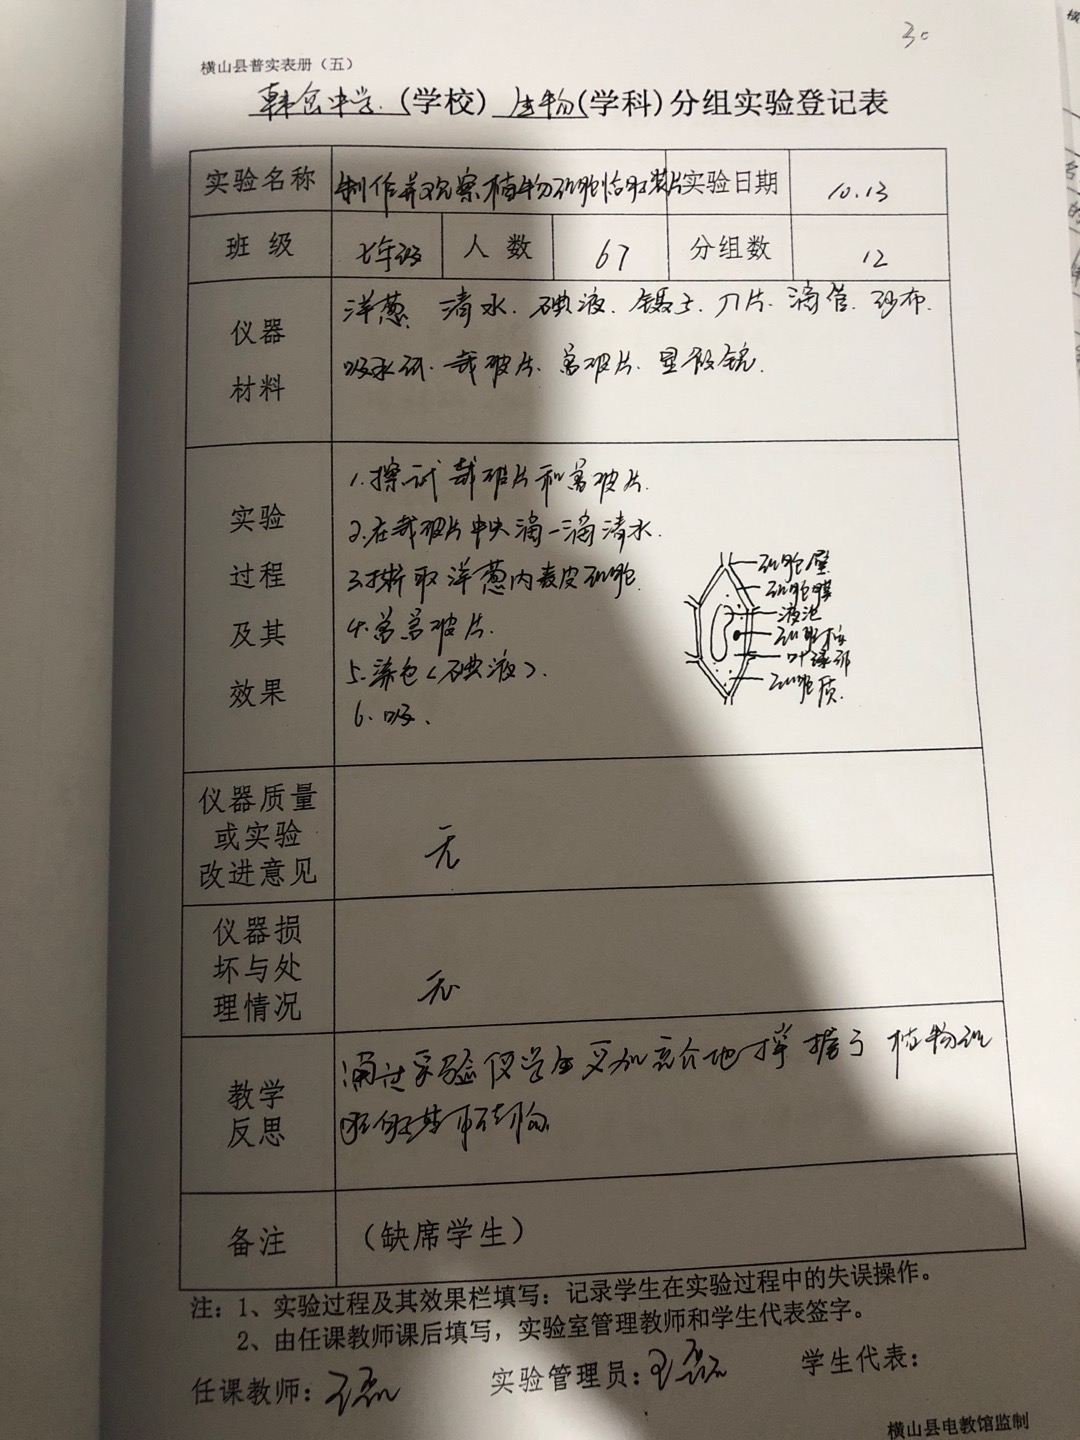 30
横山县普实表册（五）
韩岔中学（学校）生物（学科）分组实验登记表
实验名称 制作并观察植物细胞临时装片 实验日期 10.13
班级 七年级 人数 67 分组数 12
仪器材料
洋葱 清水. 碘液. 镊子. 刀片. 滴管. 纱布.
吸水纸. 载玻片. 盖玻片. 显微镜.
实验过程及其效果
1.擦试载玻片和盖玻片.
2.在载玻片中央滴一滴清水.
3.撕取洋葱内表皮细胞.
4.盖盖玻片.
5.染色(碘液).
6.吸.
细胞壁
细胞膜
液泡
细胞核
叶绿体
细胞质.
仪器质量
或实验
改进意见
无
仪器损
坏与处
理情况
无
教学
反思
通过实验使学生更加充分地掌握了植物细
胞
备注 （缺席学生）
注：1、实验过程及其效果栏填写：记录学生在实验过程中的失误操作。
2、由任课教师课后填写，实验室管理教师和学生代表签字。
任课教师： 实验管理员： 学生代表：
横山县电教馆监制